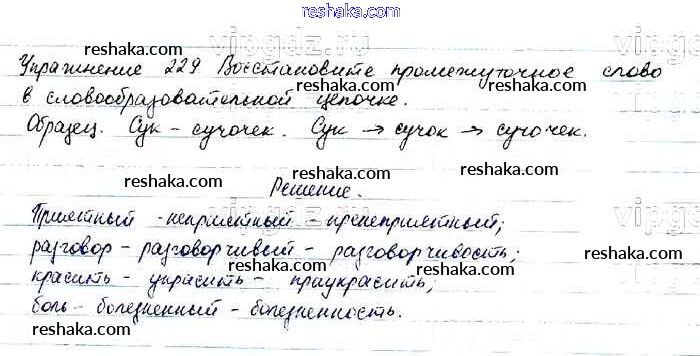 reshaka.com
vipgdz.ru
reshaka.com
reshaka.com
Упражнение 229 Восстановите промежуточное слово
reshaka.com
reshaka.com
в словообразовательной цепочке.
Образец. Сук - сучочек. Сук → сучок → сучочек.
reshaka.com
reshaka.com
reshaka.com
Решение.
reshaka.com
Приятный - неприятный - пренеприятный;
разговор - разговорчивый - разговорчивость;
reshaka.com
reshaka.com
красить - украсить - приукрасить;
боль - болезненный - болезненность.
reshaka.com
reshaka.com